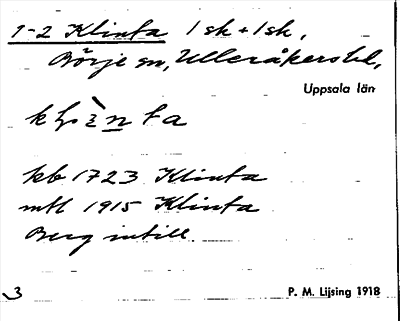 1-2 Klinta 1 sk + 1 sk,
Börje sn, Ulleråkers hd,
Uppsala län
kb 1723 Klinta
mtl 1915 Klinta
Berg intill
3 P. M. Lijsing 1918